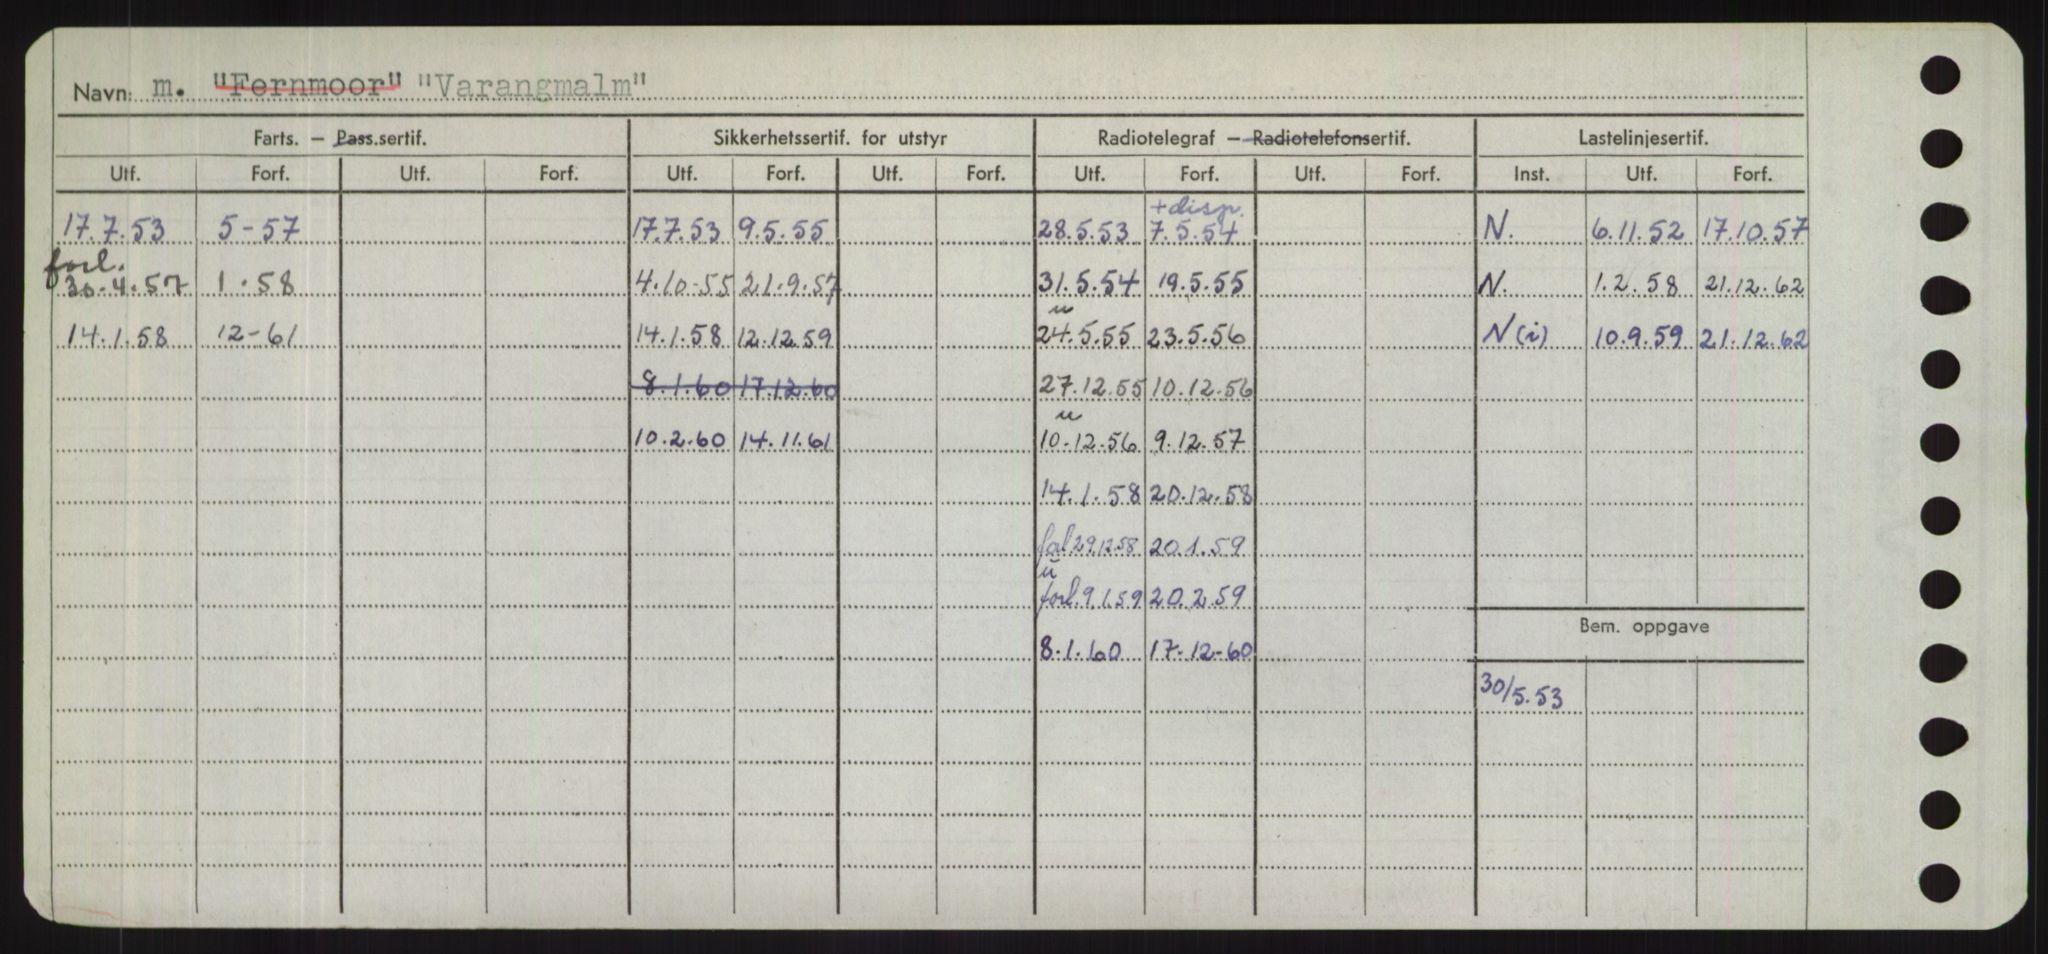 Navn: m. "Fernmoor" "Varangmalm"
Farts. — Pass.sertif. Sikkerhetssertif. for utstyr Radiotelegraf — Radiotelefonsertif. Lastelinjesertif.
Utf. Forf. Utf. Forf. Utf. Forf. Utf. Forf. Utf. Forf. Utf. Forf. Inst. Utf. Forf.
+ disp.
17.7.53 5-57 17.7.53 9.5.55 28.5.53 7.5.54 N. 6.11.52 17.10.57
forl.
30.4.57 1.58 4.10-55 21.9.57 31.5.54 19.5.55 N. 1.2.58 21.12.62
u
14.1.58 12-61 14.1.58 12.12.59 24.5.55 23.5.56 N(i) 10.9.59 21.12.62
8.1.60 17.12.60 27.12.55 10.12.56
u
10.2.60 14.11.61 10.12.56 9.12.57
14.1.58 20.12.58
29.12.58 20.1.59
u
forl. 9.1.59 20.2.59
Bem. oppgave
8.1.60 17.12-60
30/5.53